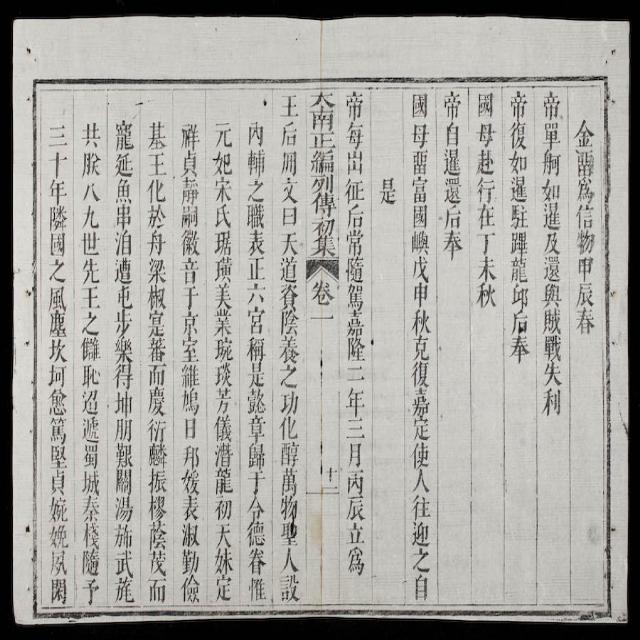 金留為信物甲辰春
帝單舸如暹及還與賊戰失利
帝復如暹駐蹕龍邱后奉
國母赴行在丁未秋
帝自暹還后奉
國母留富國嶼戊申秋克復嘉定使人往迎之自
是
帝每出征后常隨駕嘉隆二年三月丙辰立為
大南正編列傳初集 卷一 十二
王后冊文曰天道資陰養之功化醇萬物聖人設
內輔之職表正六宮稱是懿章歸于令德眷惟
元妃宋氏琚璜美業琬琰芳儀潛龍初天妹定
祥貞靜嗣徽音于京室雞鳴日邦媛表淑勤儉
基王化於母梁椒寔蕃而慶衍麟振樛蔭茂而
寵延魚串洎遭屯步樂得坤朋艱關湯斾武旄
共朕八九世先王之讎恥迢遞蜀城秦棧隨予
三十年隣國之風塵坎坷愈篤堅貞婉娩夙閑